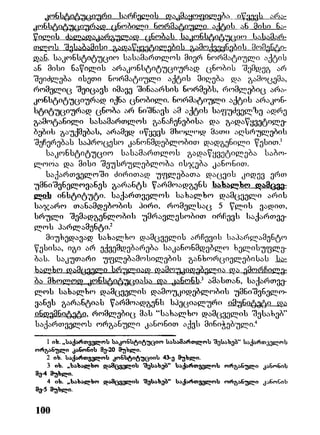 კონსტიტუციური სარჩელის დაკმაყოფილება იწვევს არა-
კონსტიტუციურად ცნობილი ნორმატიული აქტის ან მისი ნა-
წილის ძალადაკარგულად ცნობას საკონსტიტუციო სასამარ-
თლოს შესაბამისი გადაწყვეტილების გამოქვეყნების მომენტი-
დან. საკონსტიტუციო სასამართლოს მიერ ნორმატიული აქტის
ან მისი ნაწილის არაკონსტიტუციურად ცნობის შემდეგ არ
შეიძლება ისეთი ნორმატიული აქტის მიღება და გამოცემა,
რომელიც შეიცავს იმავე შინაარსის ნორმებს, რომლებიც არა-
კონსტიტუციურად იქნა ცნობილი. ნორმატიული აქტის არაკონ-
სტიტუციურად ცნობა არ ნიშნავს ამ აქტის საფუძველზე ადრე
გამოტანილი სასამართლოს განაჩენებისა და გადაწყვეტილე-
ბების გაუქმებას, არამედ იწვევს მხოლოდ მათი აღსრულების
შეჩერებას საპროცესო კანონმდებლობით დადგენილი წესით.¹
საკონსტიტუციო სასამართლოს გადაწყვეტილება საბო-
ლოოა და მისი შეუსრულებლობა ისჯება კანონით.
საქართველოში ძირითად უფლებათა დაცვის კიდევ ერთ
უმნიშვნელოვანეს გარანტს წარმოადგენს სახალხო დამცვე-
ლის ინსტიტუტი. საქართველოს სახალხო დამცველი არის
საჯარო თანამდებობის პირი, რომელსაც 5 წლის ვადით,
სრული შემადგენლობის უმრავლესობით ირჩევს საქართვე-
ლოს პარლამენტი.²
მიუხედავად სახალხო დამცველის არჩევის საპარლამენტო
წესისა, იგი არ ექვემდებარება საკანონმდებლო ხელისუფლე-
ბას. საკუთარი უფლებამოსილების განხორციელებისას სა-
ხალხო დამცველი სრულიად დამოუკიდებელია და ემორჩილე-
ბა მხოლოდ კონსტიტუციასა და კანონს.³ ამასთან, საქართვე-
ლოს სახალხო დამცველის დამოუკიდებლობის უმნიშვნელო-
ვანეს გარანტიას წარმოადგენს სპეციალური იმუნიტეტი და
ინდემნიტეტი, რომლებიც მას “სახალხო დამცველის შესახებ”
საქართველოს ორგანული კანონით აქვს მინიჭებული.⁴
1 იხ. „საქართველოს საკონსტიტუციო სასამართლოს შესახებ“ საქართველოს
ორგანული კანონის მე-20 მუხლი.
2 იხ. საქართველოს კონსტიტუციის 43-ე მუხლი.
3 იხ. „სახალხო დამცველის შესახებ“ საქართველოს ორგანული კანონის
მე-4 მუხლი.
4 იხ. „სახალხო დამცველის შესახებ“ საქართველოს ორგანული კანონის
მე-5 მუხლი.
100